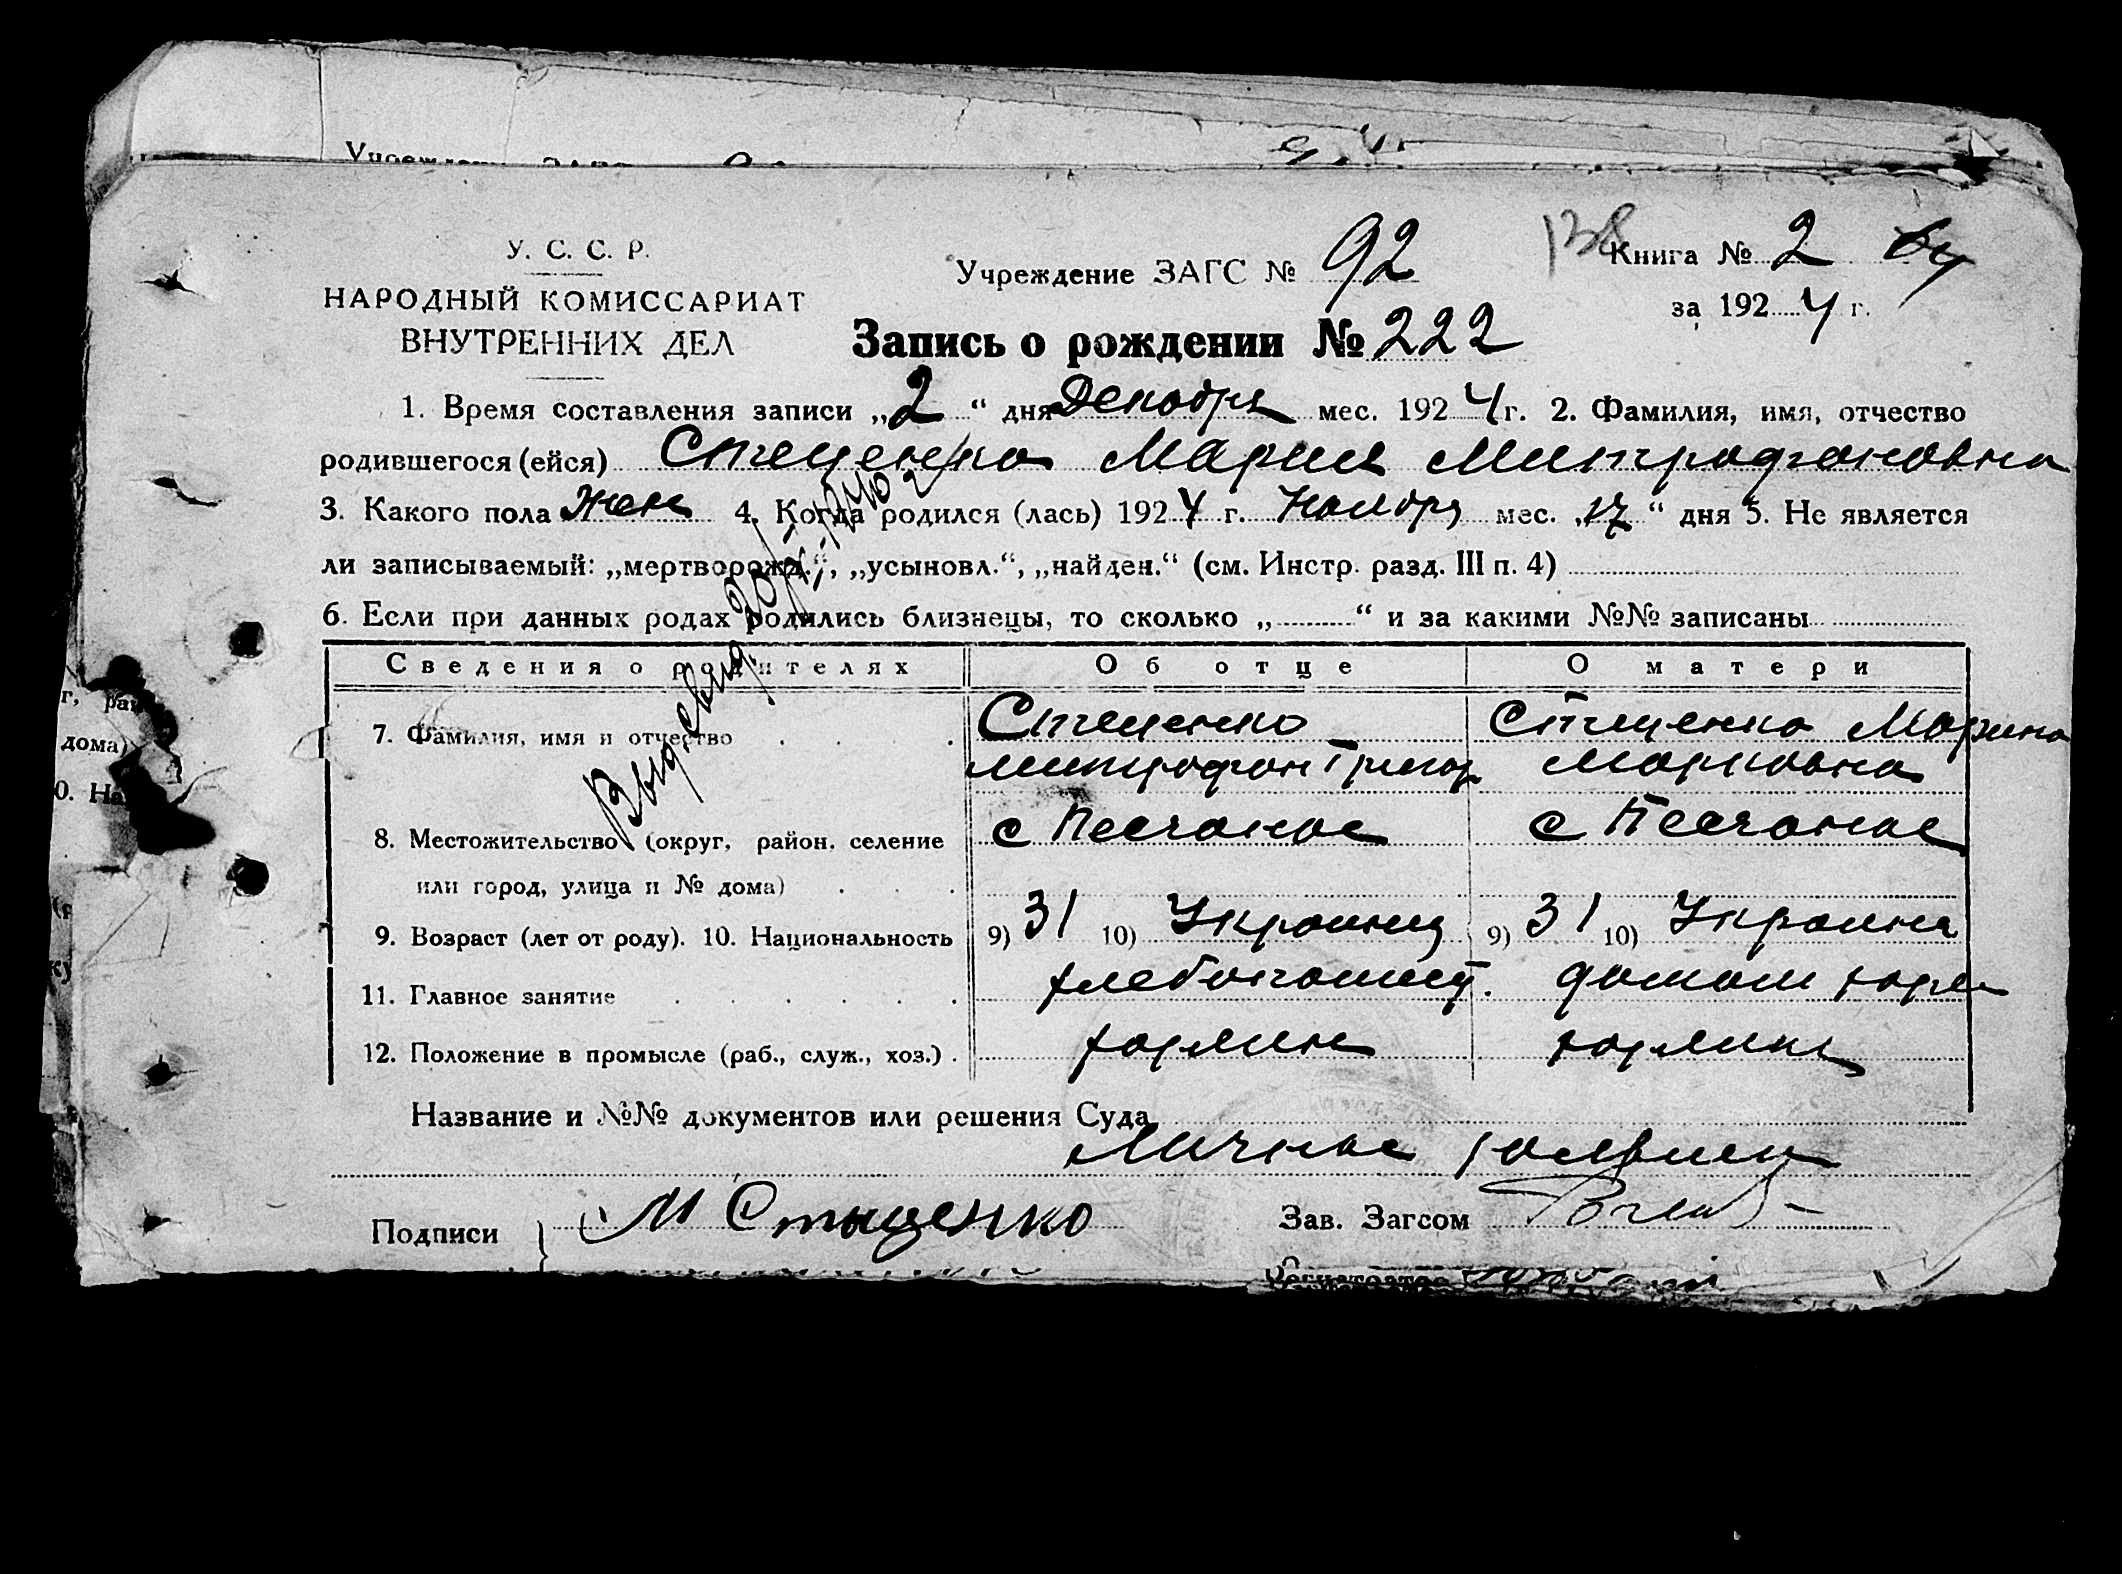 У. С. С. Р.
НАРОДНЫЙ КОМИССАРИАТ
ВНУТРЕННИХ ДЕЛ
Учреждение ЗАГС № 92
138
Книга № 2
за 1924 г.
Запись о рождении № 222
1. Время составления записи „2“ дня Декабря мес. 1924 г. 2. Фамилия, имя, отчество
родившегося (ейся) Стеценко Мария Митрофановна
3. Какого пола жен 4. Когда родился (лась) 1924 г. Ноября мес. „17“ дня 5. Не является
ли записываемый: „мертворожд.“, „усыновл.“, „найден.“ (см. Инстр. разд. III п. 4)
6. Если при данных родах родились близнецы, то сколько „ “ и за какими №№ записаны
Выд. свид.
Сведения о родителях Об отце О матери
7. Фамилия, имя и отчество Стеценко Стеценко Марина
Митрофан Григор Марковна
8. Местожительство (округ, район, селение с Песчаное с Песчаное
или город, улица и № дома)
9. Возраст (лет от роду). 10. Национальность 9) 31 10) Украинц 9) 31 10) Украинка
11. Главное занятие хлебопашец.
12. Положение в промысле (раб., служ., хоз.) . хозяин хозяйка
Название и №№ документов или решения Суда
Личное
Подписи М Стыценко Зав. Загсом